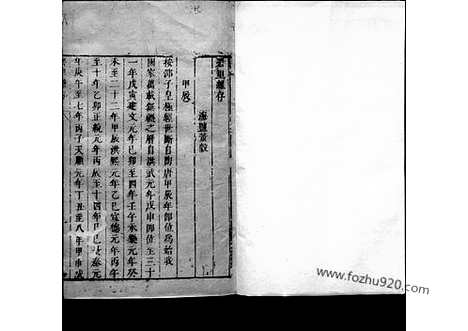 甲辰
按邵子皇極經世斷自陶唐甲辰年卽位爲始我
國家萬載鉅縣之曆自洪武元年戊申卽位至三十
一年戊寅建文元年己卯至四年壬午永樂元年癸
未至二十二年甲辰洪熙元年乙巳宣德元年丙午
至十年乙卯正統元年丙辰至十四年己巳景泰元
年庚午至七年丙子天順元年丁丑至八年甲申成
www.fozhu920.com